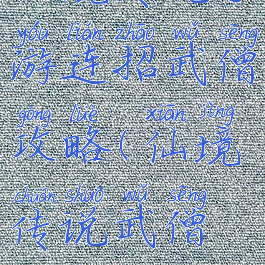 yóu lián zhāo wǔ sēng
游连招武僧
gōng lüè xiān jìng
攻略(仙境
chuán shuō wǔ sēng
传说武僧